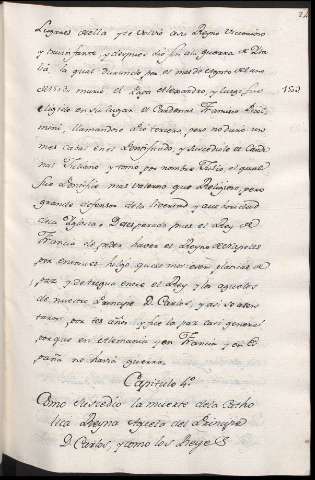 Lugares della, y se volvió a su Reyno victorioso
y triunfante, y despues dió fin a la guerra de Ita
lia, la qual durando, por el mes de Agosto del año
de 1503 murió el Papa Alexandro, y luego fue
1503
elegido en su lugar el Cardenal Francisco Picol
mini, llamandose Pio tercero, pero no duró un
mes cabal en el Pontificado y succediole el Carde
nal Juliano y tomó por nombre Julio el qual
fue Pontifice mas valeroso que Religioso, pero
grande defensor de la libertad y autoridad
de la Yglesia, y Desesperado pues el Rey de
Francia de poder haver el Reyno de Napoles
por entonces holgó que se moviesen platicas de
paz, y de tregua entre el Rey y los aguelos
de nuestro Principe D. Carlos, y asi se asen
taron por tres años, y fue la paz casi general
porque en Alemania y en Francia y en Es
paña no havia guerra.
Capitulo 4º
Como succedio la muerte de la Catho
lica Reyna Aguela del Principe
D. Carlos, y como los Reyes